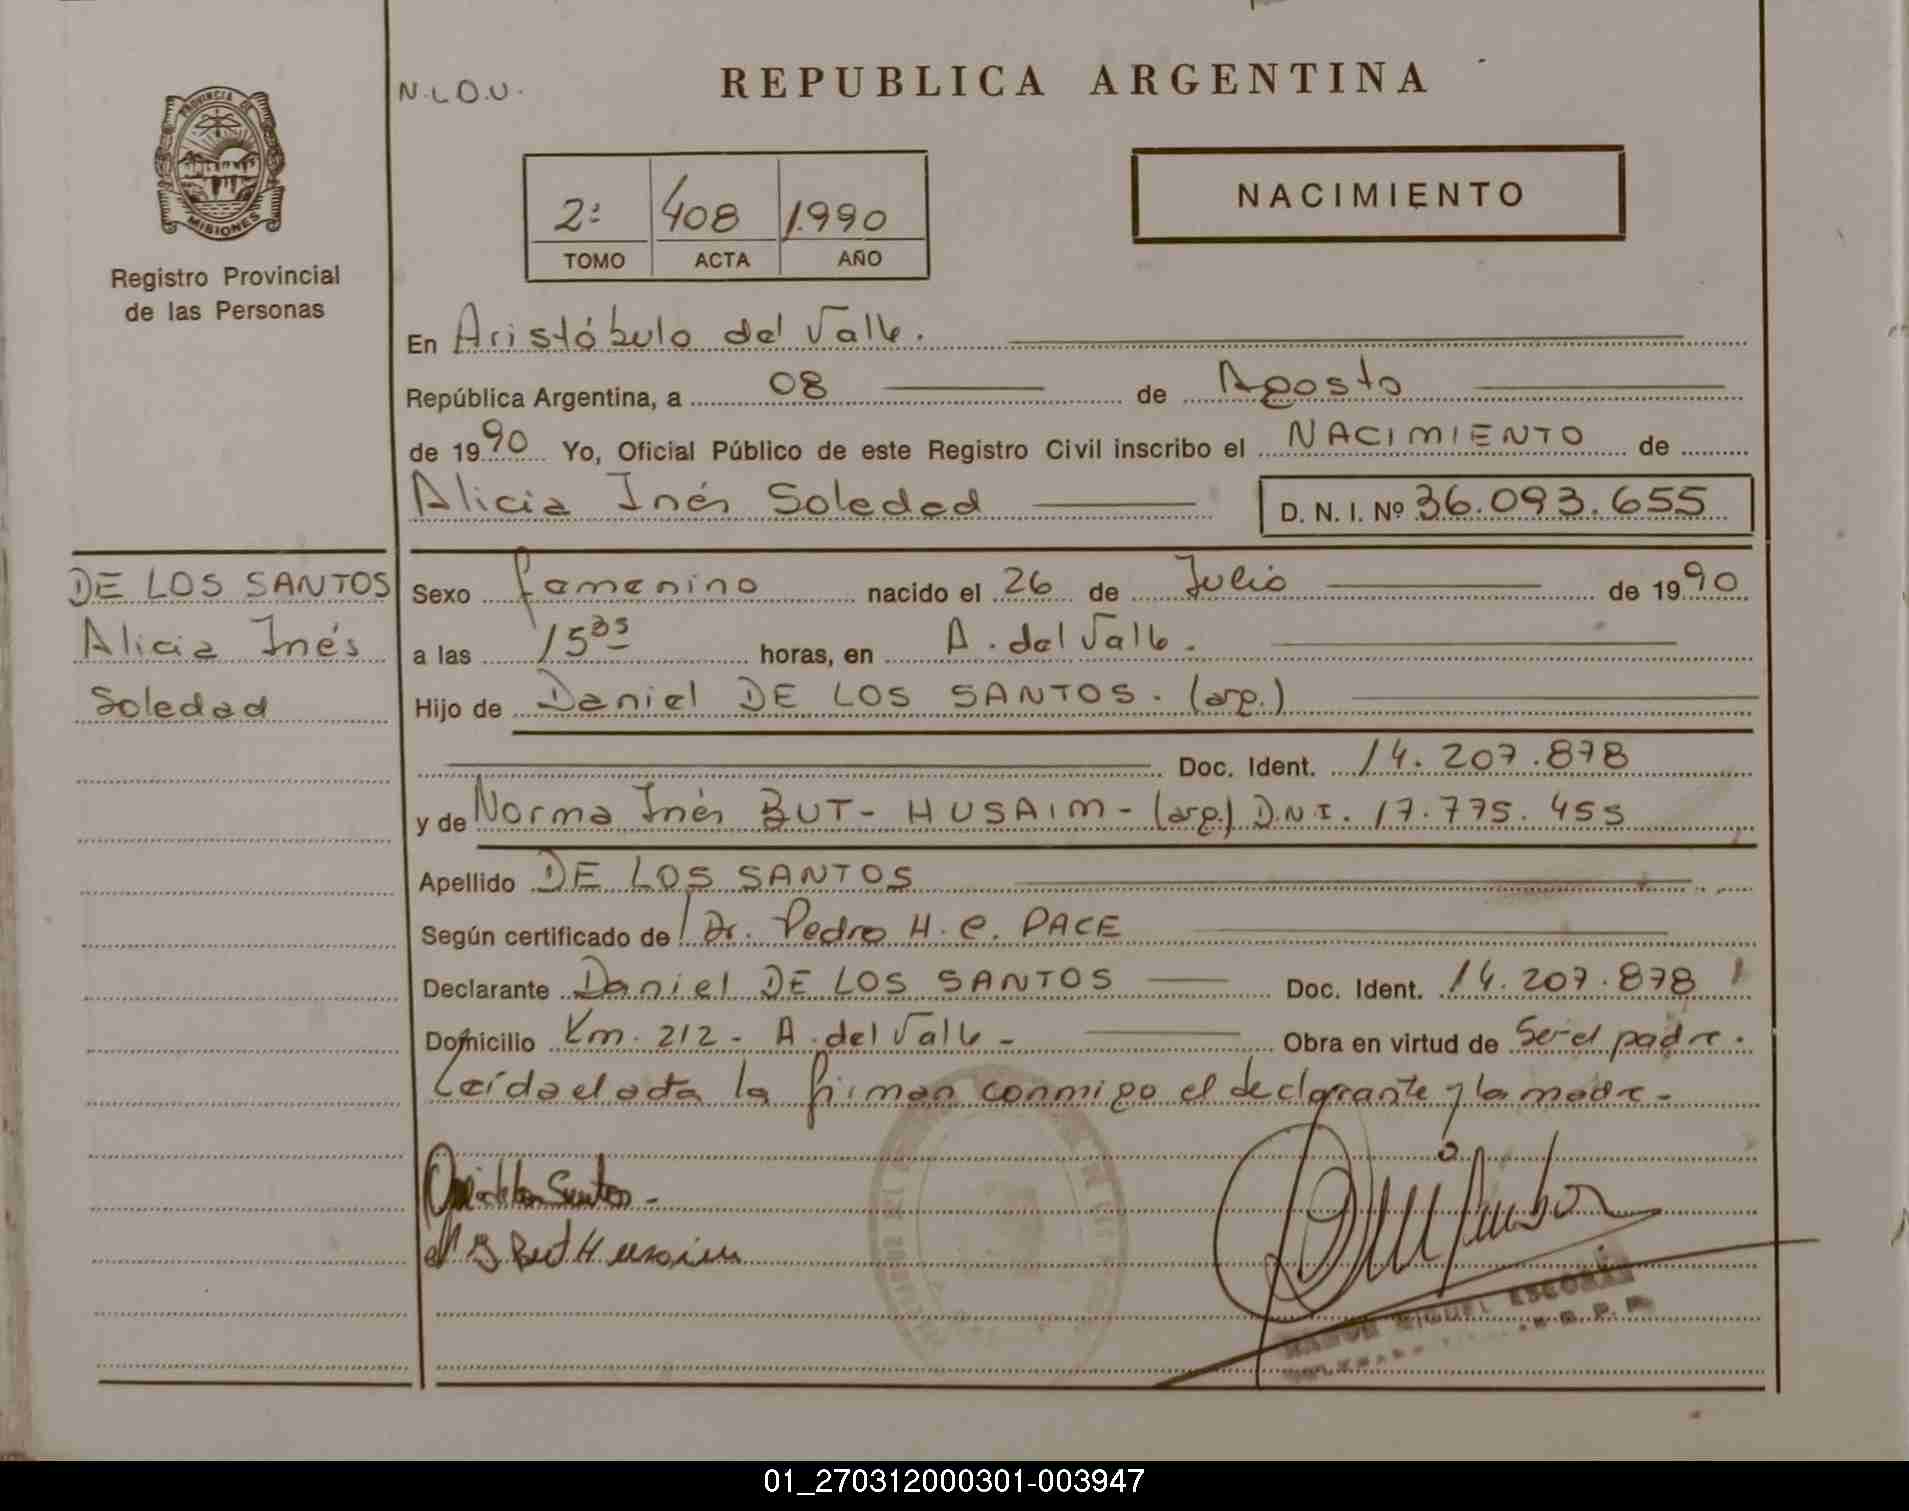 N.L.O.U.
REPUBLICA ARGENTINA
PROVINCIA DE
MISIONES
Registro Provincial
de las Personas
2º 408 1.990
TOMO ACTA AÑO
NACIMIENTO
En Aristóbulo del Valle.
República Argentina, a 08 de Agosto
de 1990 Yo, Oficial Público de este Registro Civil inscribo el NACIMIENTO de
Alicia Inés Soledad D. N. I. Nº 36.093.655
DE LOS SANTOS
Alicia Inés
Soledad
Sexo femenino nacido el 26 de Julio de 1990
a las 15 35 horas, en A. del Valle.
Hijo de Daniel DE LOS SANTOS. (arg.)
Doc. Ident. 14.207.878
y de Norma Inés BUT- HUSAIM- (arg.) D.N.I. 17.775.455
Apellido DE LOS SANTOS
Según certificado de Dr. Pedro H. C. PACE
Declarante Daniel DE LOS SANTOS Doc. Ident. 14.207.878
Domicilio Km. 212 - A. del Valle - Obra en virtud de Ser el padre.
Leída el acta la firman conmigo el declarante y la madre.-
MIGUEL ESCOBAR
01_270312000301-003947